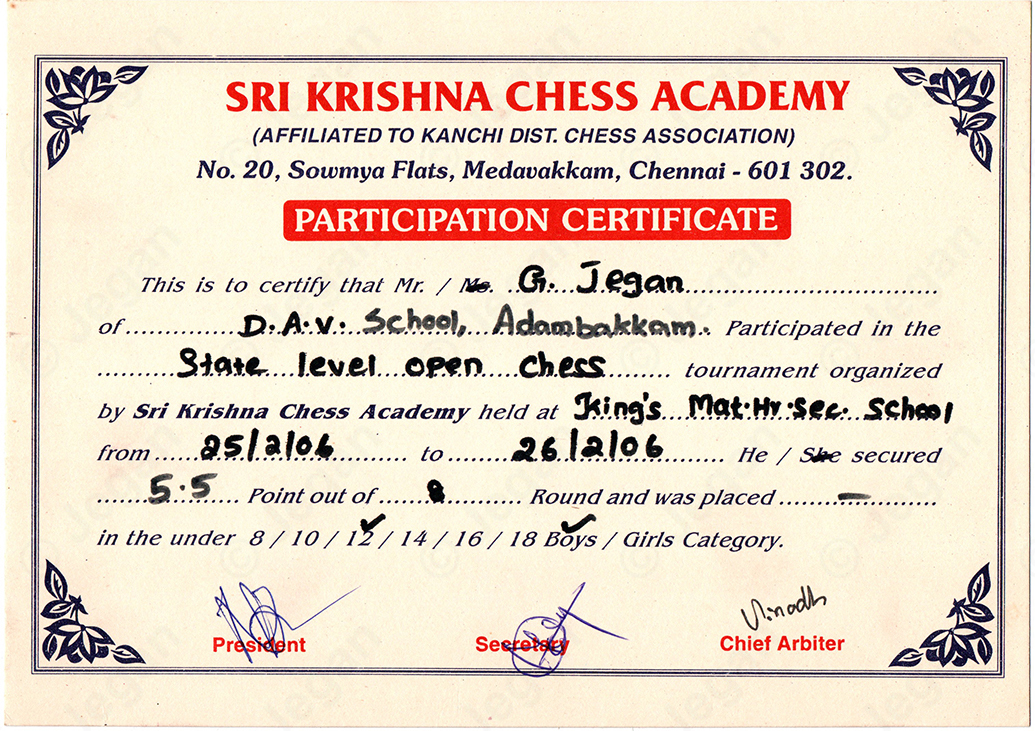 SRI KRISHNA CHESS ACADEMY
(AFFILIATED TO KANCHI DIST. CHESS ASSOCIATION)
No. 20, Sowmya Flats, Medavakkam, Chennai - 601 302.
PARTICIPATION CERTIFICATE
This is to certify that Mr. / Ms. G. Jegan
of D.A.V. School, Adambakkam. Participated in the
State level open Chess tournament organized
by Sri Krishna Chess Academy held at King's Mat.Hr.Sec. School
from 25/2/06 to 26/2/06 He / She secured
5.5 Point out of 8 Round and was placed —
in the under 8 / 10 / 12 / 14 / 16 / 18 Boys / Girls Category.
Vinodh
President Secretary Chief Arbiter